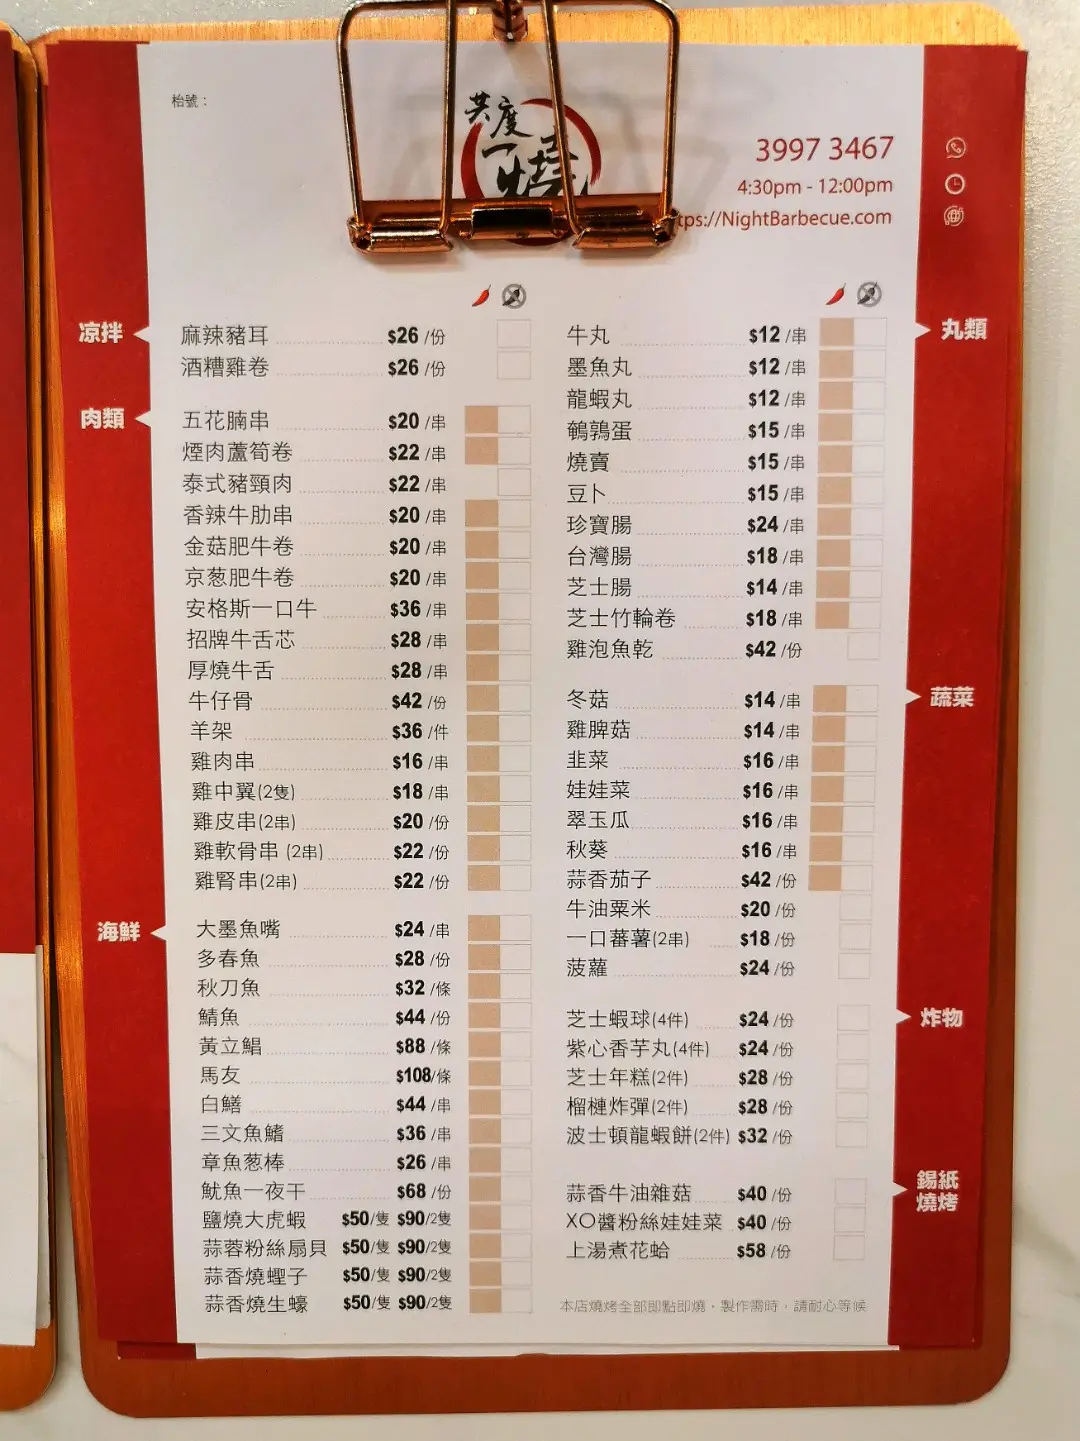 枱號：
共度一燒
3997 3467
4:30pm - 12:00pm
tps://NightBarbecue.com
凉拌
麻辣豬耳 $26 /份
酒糟雞卷 $26 /份
肉類
五花腩串 $20 /串
煙肉蘆筍卷 $22 /串
泰式豬頸肉 $22 /串
香辣牛肋串 $20 /串
金菇肥牛卷 $20 /串
京葱肥牛卷 $20 /串
安格斯一口牛 $36 /串
招牌牛舌芯 $28 /串
厚燒牛舌 $28 /串
牛仔骨 $42 /份
羊架 $36 /件
雞肉串 $16 /串
雞中翼(2隻) $18 /串
雞皮串(2串) $20 /份
雞軟骨串 (2串) $22 /份
雞腎串(2串) $22 /份
海鮮
大墨魚嘴 $24 /串
多春魚 $28 /份
秋刀魚 $32 /條
鯖魚 $44 /份
黃立鯧 $88 /條
馬友 $108/條
白鱔 $44 /串
三文魚鰭 $36 /串
章魚葱棒 $26 /串
魷魚一夜干 $68 /份
鹽燒大虎蝦 $50/隻 $90/2隻
蒜蓉粉絲扇貝 $50/隻 $90/2隻
蒜香燒蟶子 $50/隻 $90/2隻
蒜香燒生蠔 $50/隻 $90/2隻
丸類
牛丸 $12 /串
墨魚丸 $12 /串
龍蝦丸 $12 /串
鵪鶉蛋 $15 /串
燒賣 $15 /串
豆卜 $15 /串
珍寶腸 $24 /串
台灣腸 $18 /串
芝士腸 $14 /串
芝士竹輪卷 $18 /串
雞泡魚乾 $42 /份
蔬菜
冬菇 $14 /串
雞脾菇 $14 /串
韭菜 $16 /串
娃娃菜 $16 /串
翠玉瓜 $16 /串
秋葵 $16 /串
蒜香茄子 $42 /份
牛油粟米 $20 /份
一口蕃薯(2串) $18 /份
菠蘿 $24 /份
炸物
芝士蝦球(4件) $24 /份
紫心香芋丸(4件) $24 /份
芝士年糕(2件) $28 /份
榴槤炸彈(2件) $28 /份
波士頓龍蝦餅(2件) $32 /份
錫紙
燒烤
蒜香牛油雜菇 $40 /份
XO醬粉絲娃娃菜 $40 /份
上湯煮花蛤 $58 /份
本店燒烤全部即點即燒，製作需時，請耐心等候